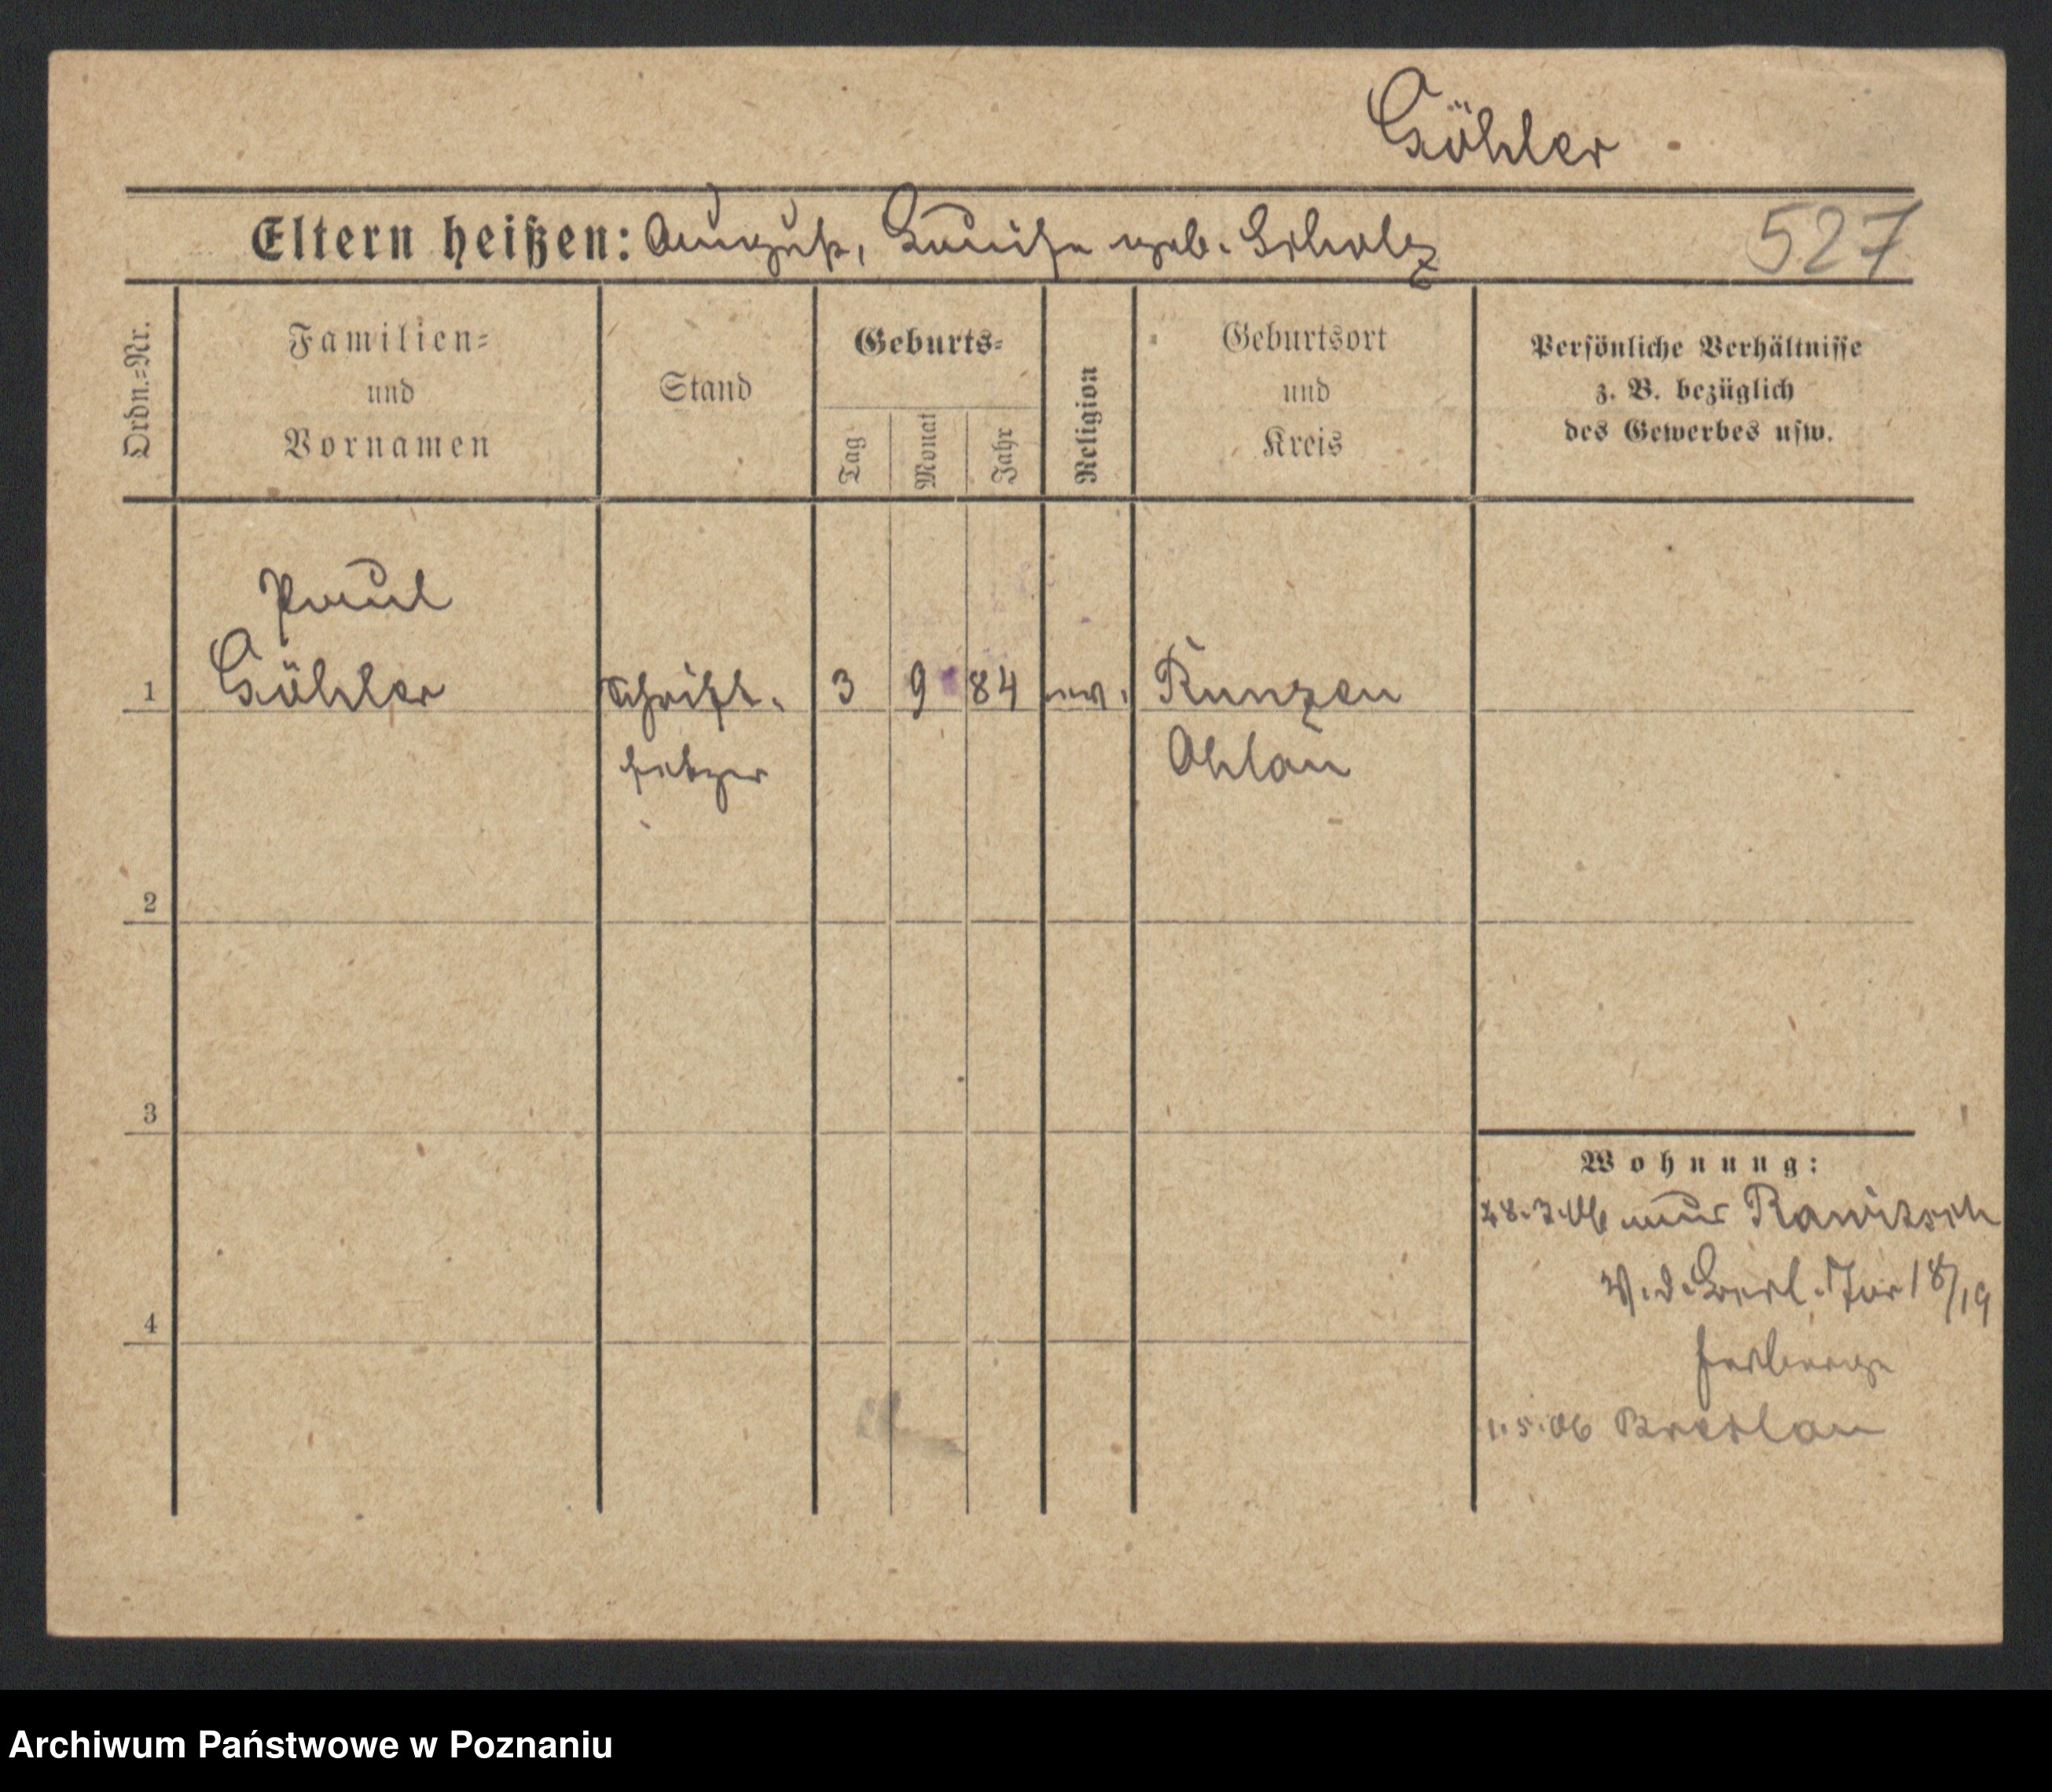 Göhler
Eltern heißen: August, Luise geb. Scholz
527
Ordn.=Nr.
Familien=
und
Vornamen
Stand
Geburts=
Tag
Monat
Jahr
Religion
Geburtsort
und
Kreis
Persönliche Verhältnisse
z. B. bezüglich
des Gewerbes usw.
Paul
1 Göhler Schrift- 3 9 84 ev. Runzen
setzer Ohlau
2
3
Wohnung:
28.3.06 aus Rawitsch
V. d. Berl. Tor 18/19
4
Herberge
1.5.06 Breslau
Archiwum Państwowe w Poznaniu